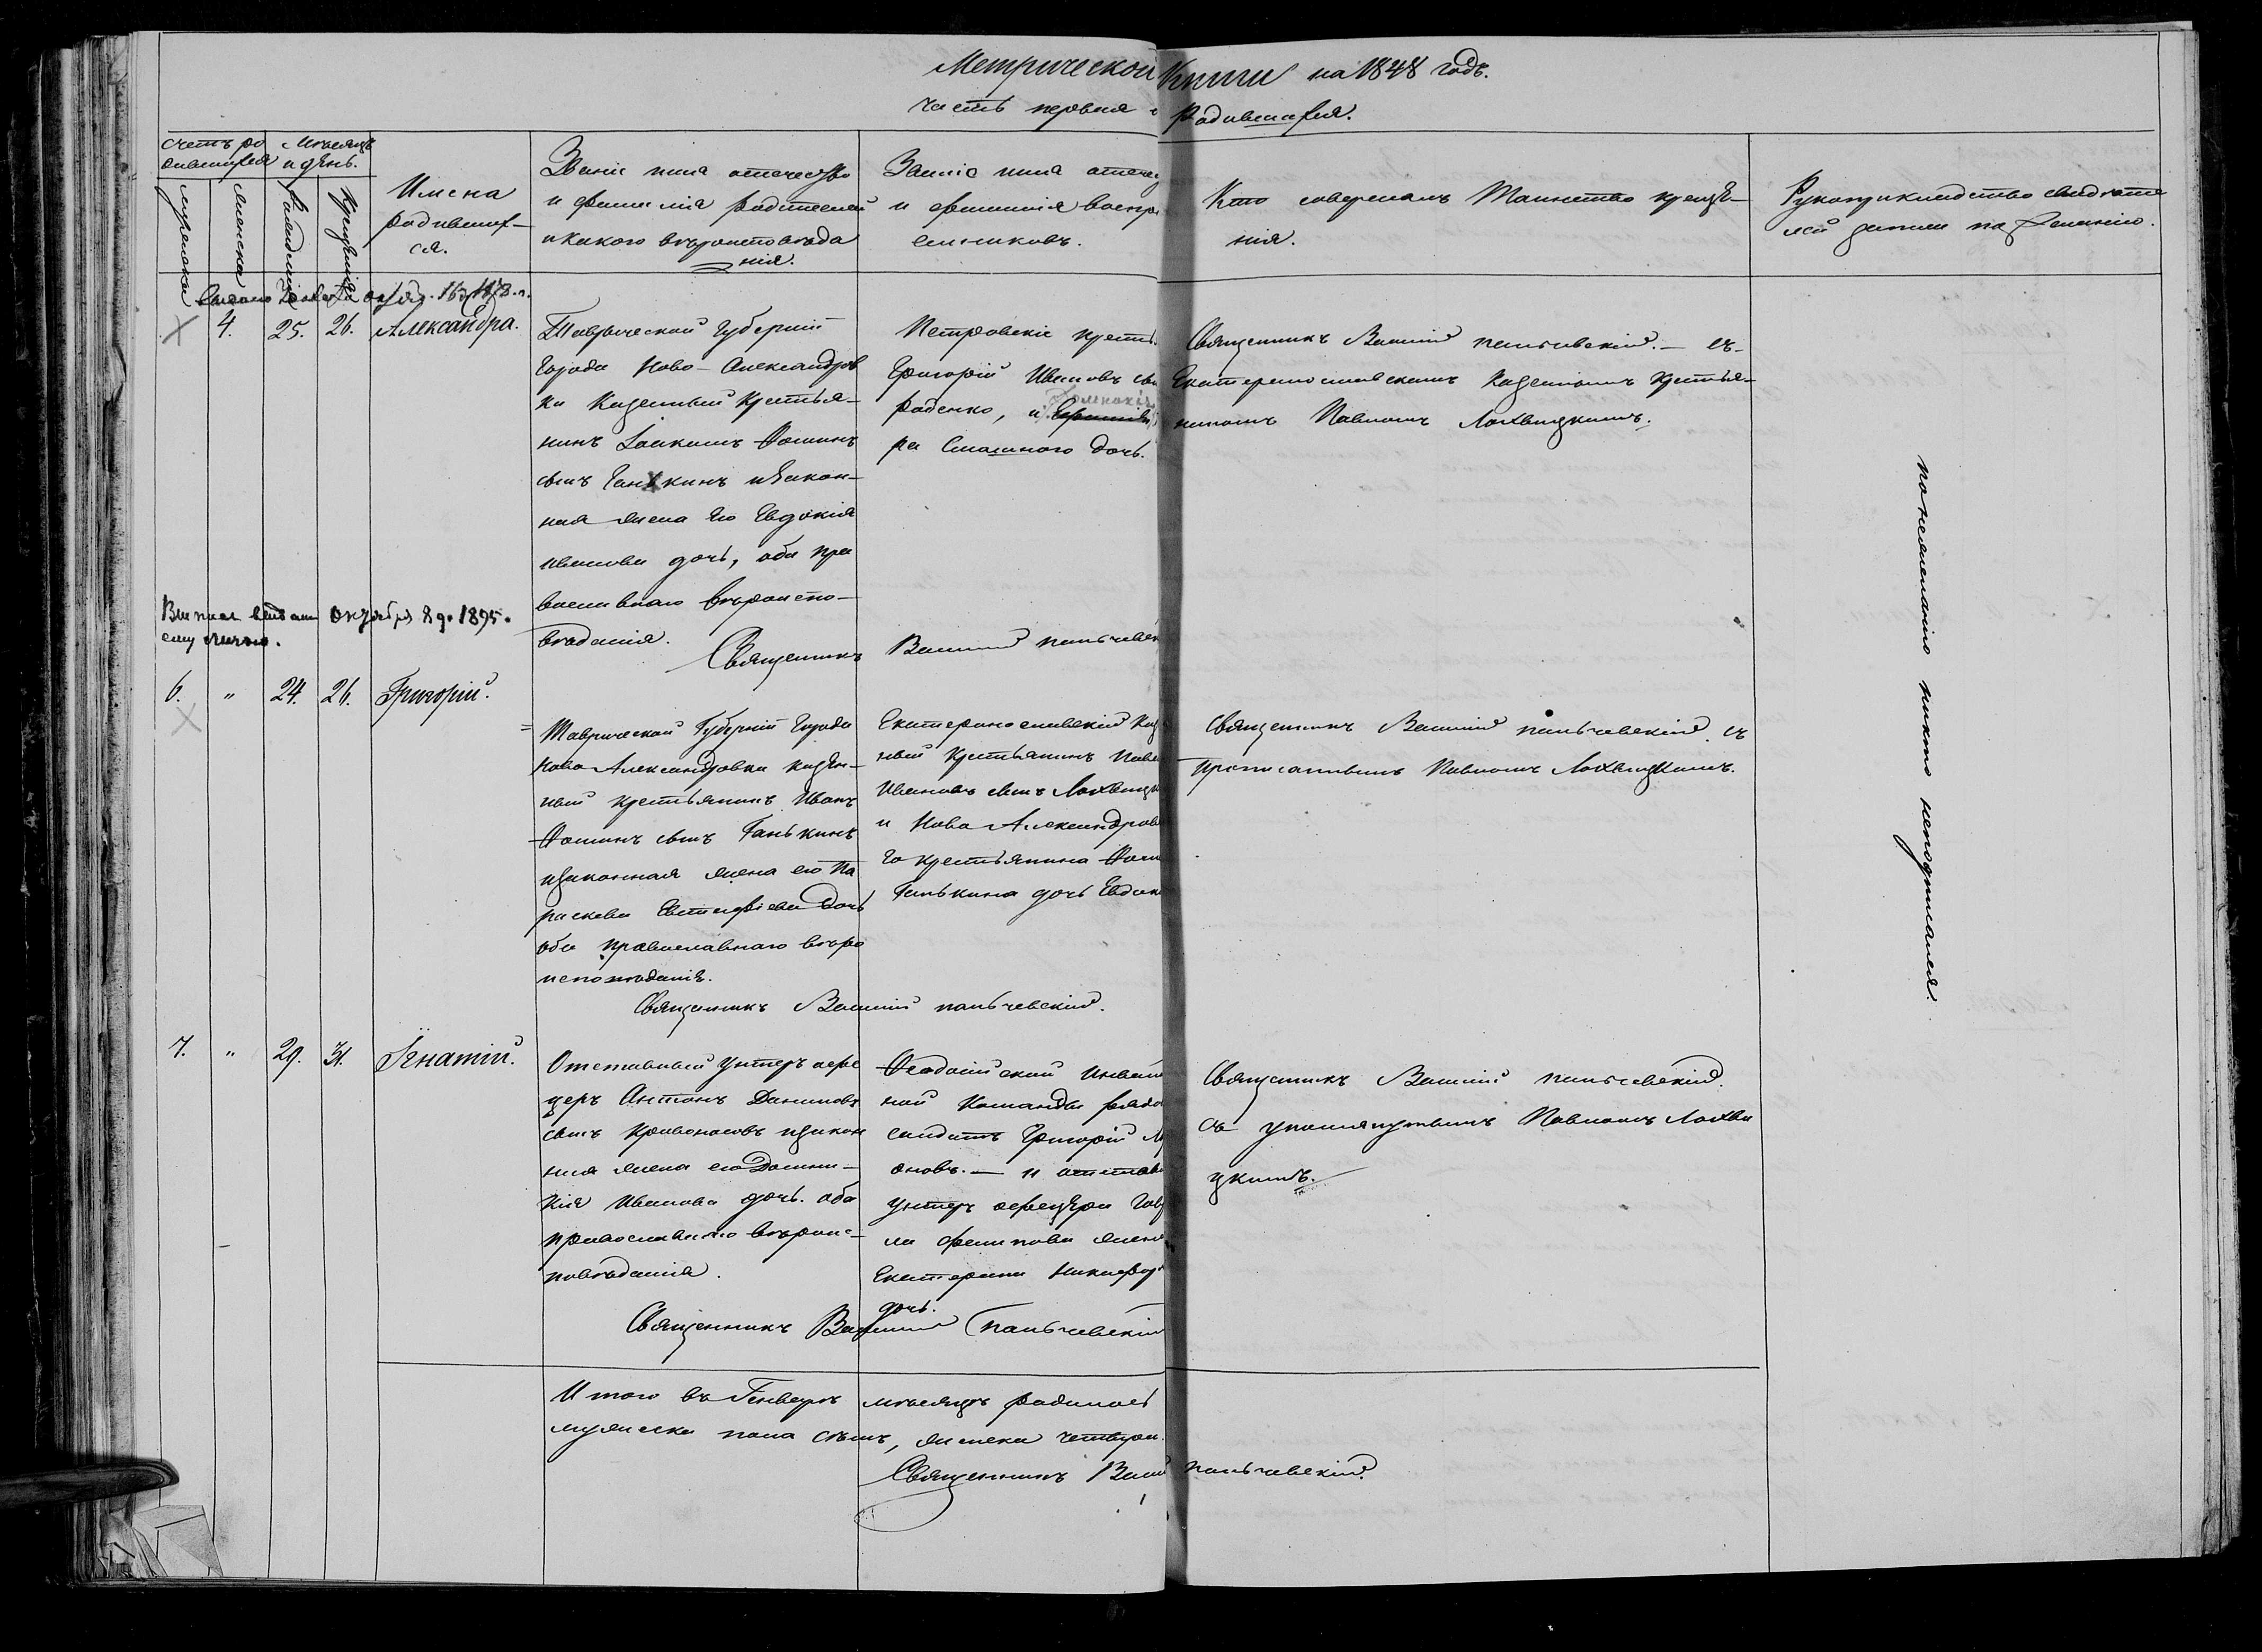 Метрической Книги на 1848 годъ.
часть первая о родившихся.
Счетъ ро
дившихся
Мѣсяцъ
и день.
мужеска
женска
рожденія
крещенія
Имена
родивших-
ся.
Званіе имя отечество
и фамилія родителей
и какого вѣроисповѣда
нія.
Званіе имя отечес
и фамилія воспрі
емниковъ.
Кто совершалъ Таинство креще-
нія.
Рукоприкладство свидѣте
лей записи по желанію.
4. 25. 26. Александра.
Таврической Губерніи
города Ново-Александров
ки Казенный крестья-
нинъ Іоакимъ Фоминъ
сынъ Ганькинъ изакон-
ная жена его Евдокія
иванова дочь, оба пра
вославнаго вѣроиспо-
вѣданія.
Священникъ Василій пальчевск
Петровскіе крестья
Григорій Ивановъ сы
раденко, и
ра дочь.
Священникъ Василій пальчевскій. — съ
Екатеринославскимъ Казеннымъ крестья-
ниномъ Павломъ Лохвицкимъ.
октября 8 д. 1895.
ему лично.
6. " 24. 26. Григорій.
Таврической Губерніи города
Ново Александровки казен-
ный крестьянинъ Иванъ
Фоминъ сынъ Ганькинъ
изаконная жена его Па
раскева Евстафіева дочь
оба православнаго вѣро
исповѣданія.
Священникъ Василій пальчевскій.
Екатеринославскій Каз
ный крестьянинъ Паве
Ивановъ сынъ Лохвицк
и Ново Александров
го крестьянина Фоми
Ганькина дочь Евдок
Священникъ Василій пальчевскій съ
прописаннымъ Павломъ Лохвицкимъ.
по нежеланію никто неподписался.
7. " 29. 31. Игнатій.
Отставный унтеръ офи
церъ Антонъ Даниловъ
сынъ Кривоносовъ изакон
ная жена его Домни-
кія Иванова дочь. оба
православнаго вѣрои-
повѣданія.
Священникъ Василій пальчевскій
Феодосійской Инвали
ной Команды рядо
солдатъ Григорій
оновъ. — и отстав
унтеръ офицера Гав
ла Филипова жена
Екатерина Никифор
дочь.
Священникъ Василій пальчевскій.
съ упомянутымъ Павломъ Лохви
цкимъ.
Итого въ Генварѣ мѣсяцѣ родилось
мужеска пола семь, женска четыре.
Священникъ Васил пальчевскій.